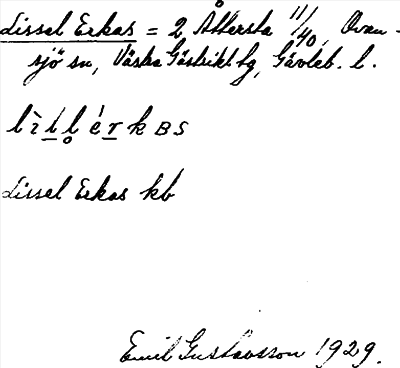 Lissel Erkas = 2 Åttersta 11/40, Ovan-
sjö sn, Västra Gästrikl. tg, Gävleb. l.
lìḷḷ érk BS
Lissel Erkas kb
Emil Gustavsson 1929.